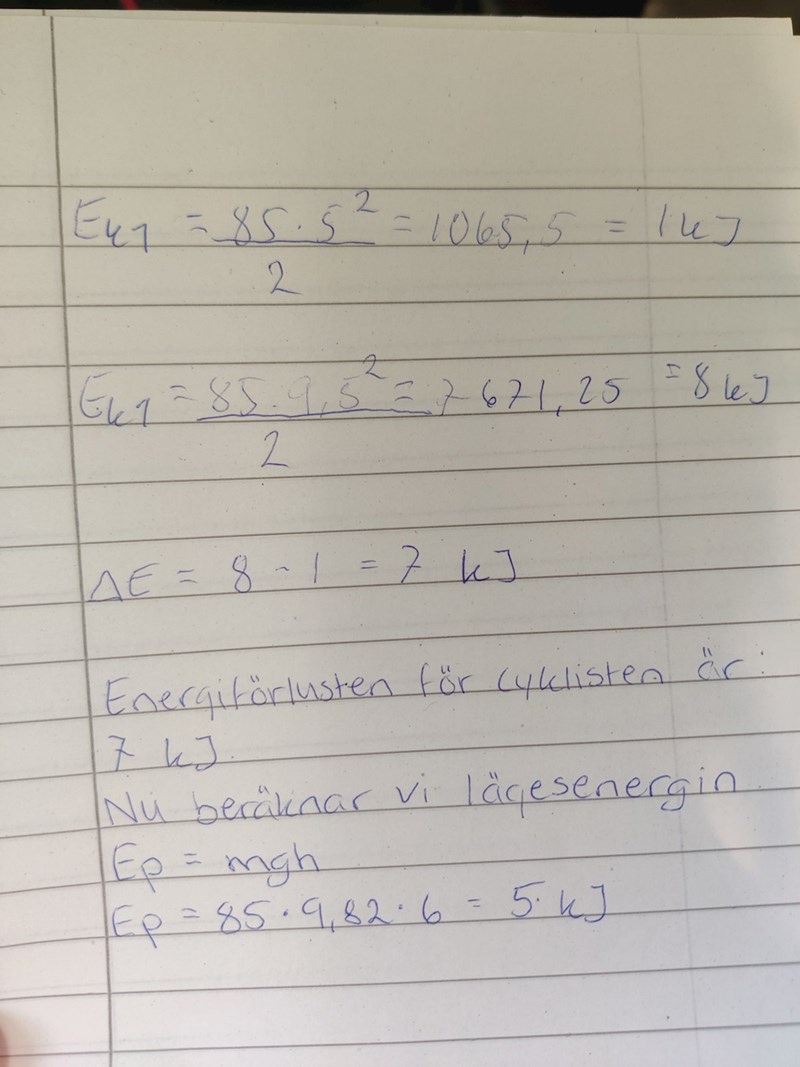 Ek1 = 85·5² / 2 = 1065,5 = 1kJ
Ek1 = 85·9,5² / 2 = 7671,25 = 8kJ
ΔE = 8 - 1 = 7 kJ
Energiförlusten för cyklisten är:
7 kJ.
Nu beräknar vi lägesenergin
Ep = mgh
Ep = 85·9,82·6 = 5· kJ